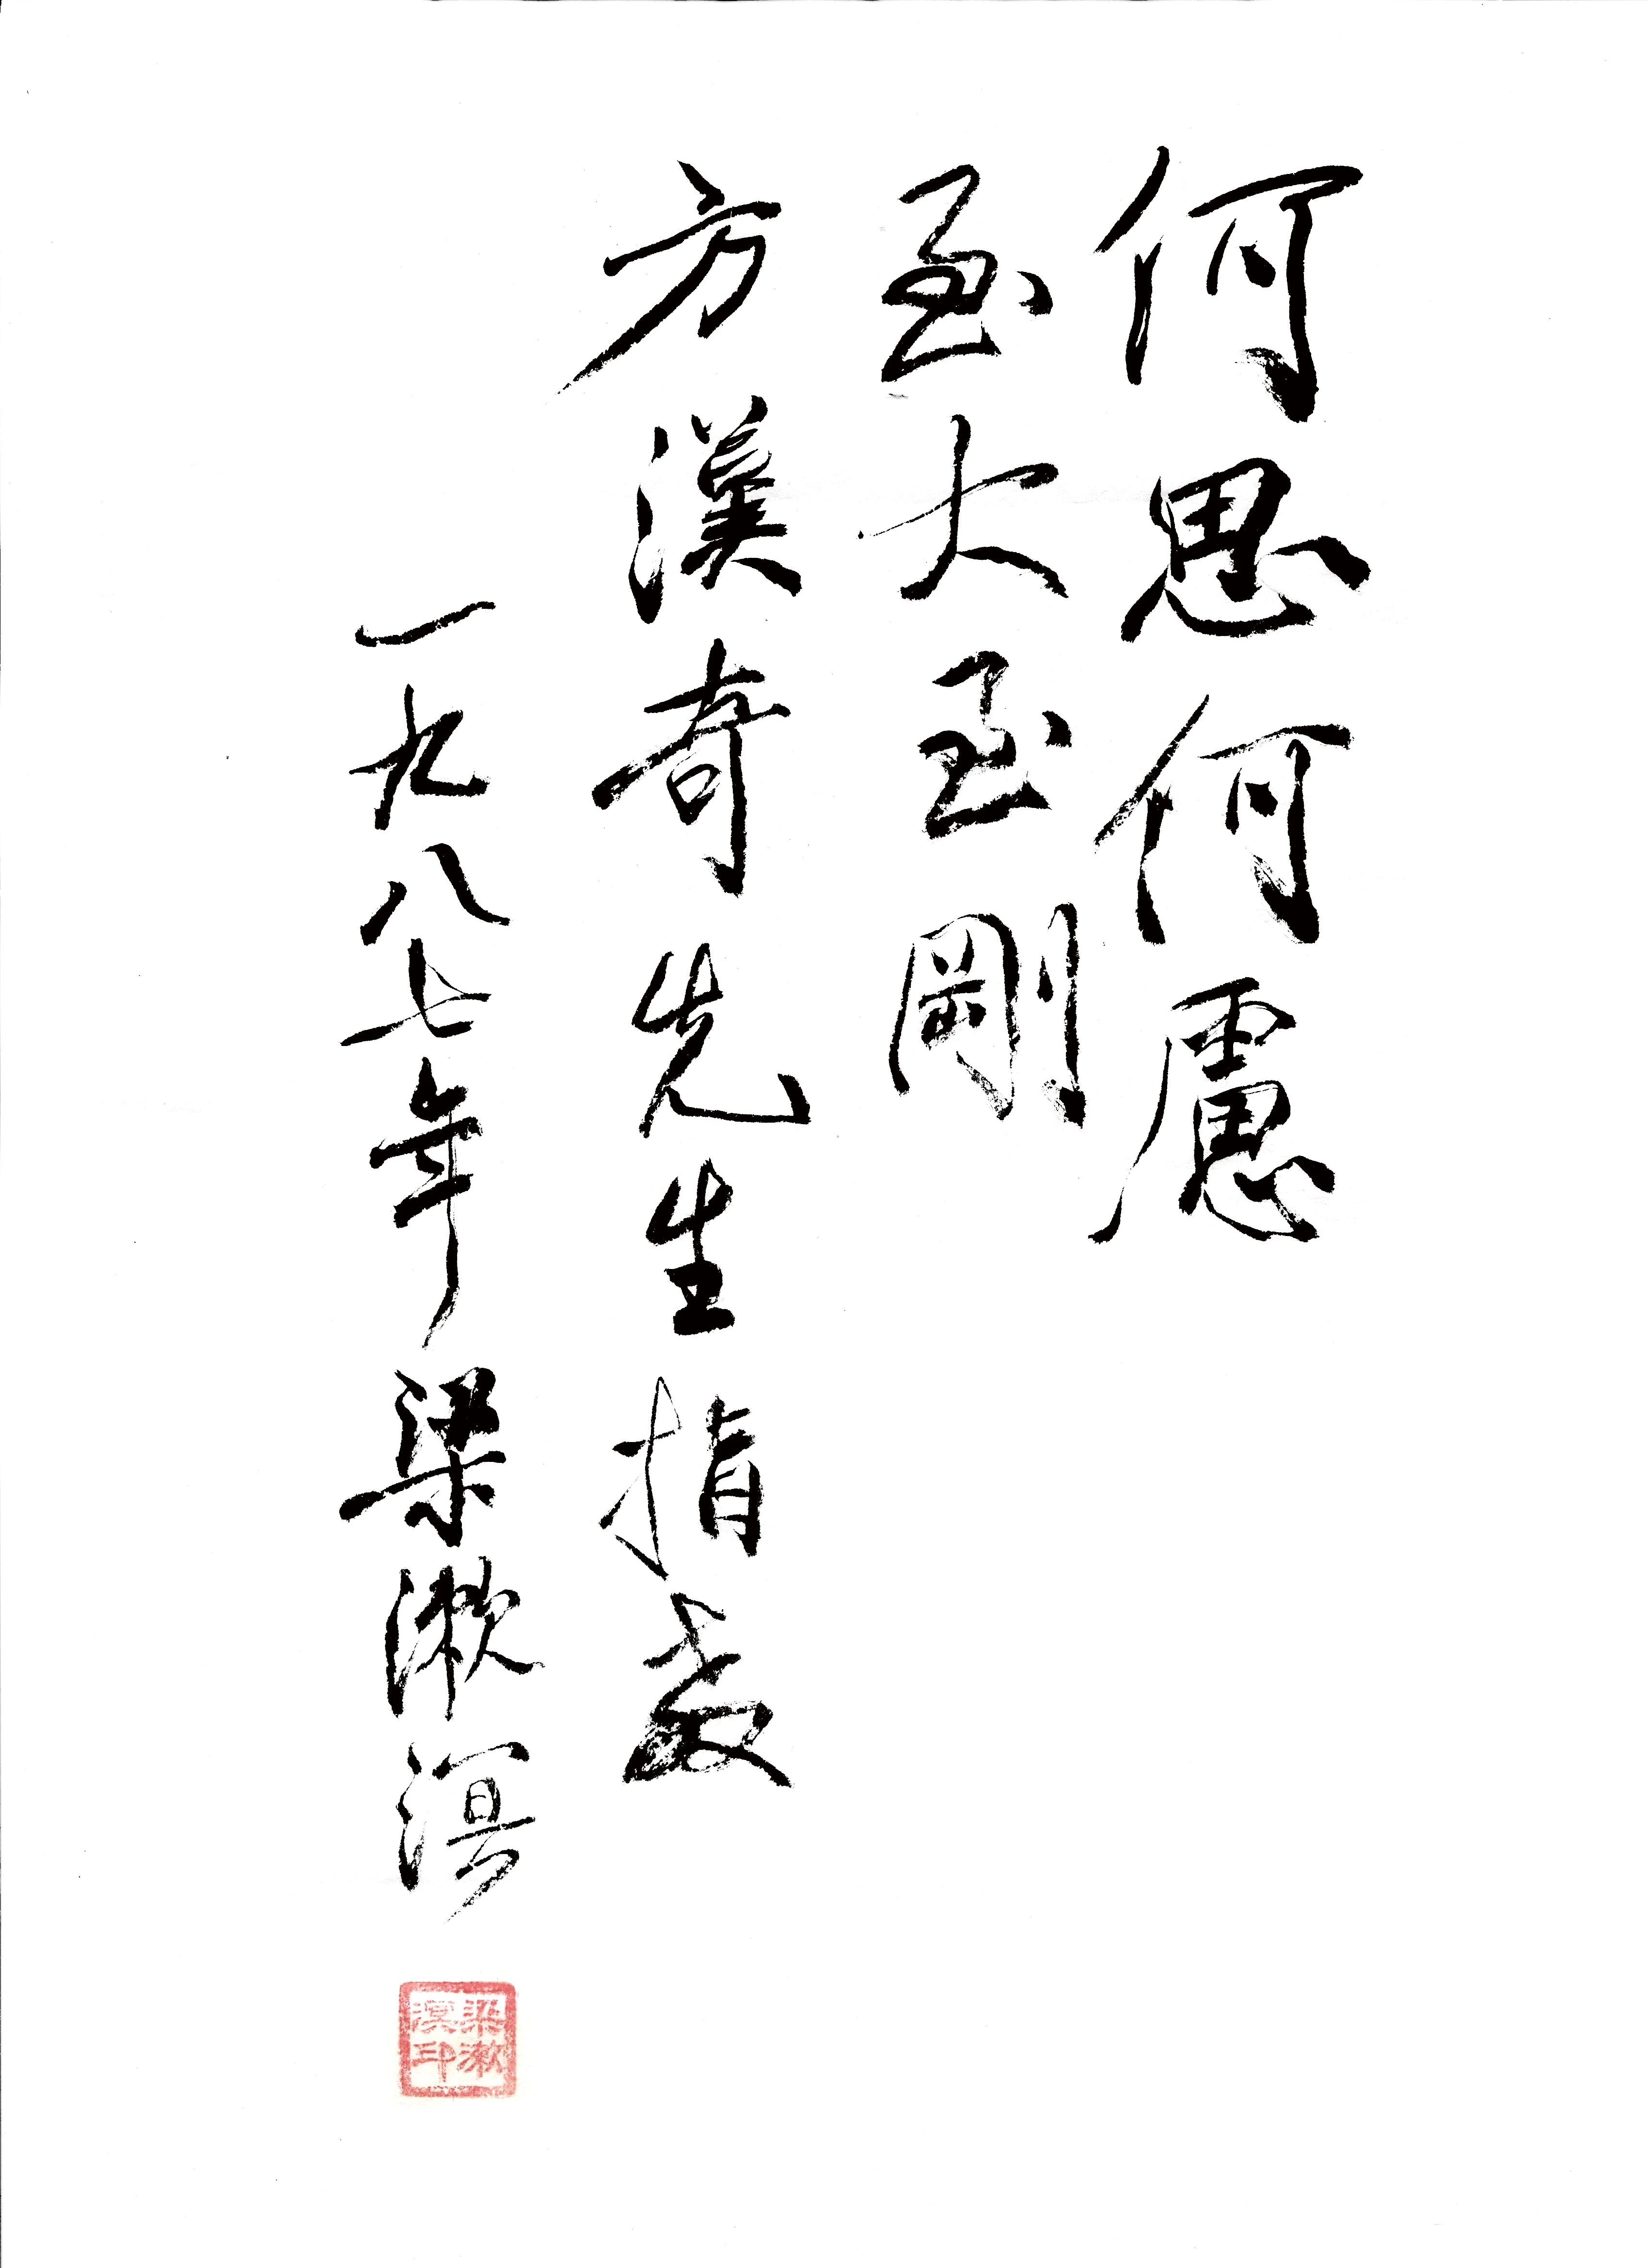 何思何慮
至大至剛
方漢奇先生指教
一九八七年梁漱溟
梁漱溟印